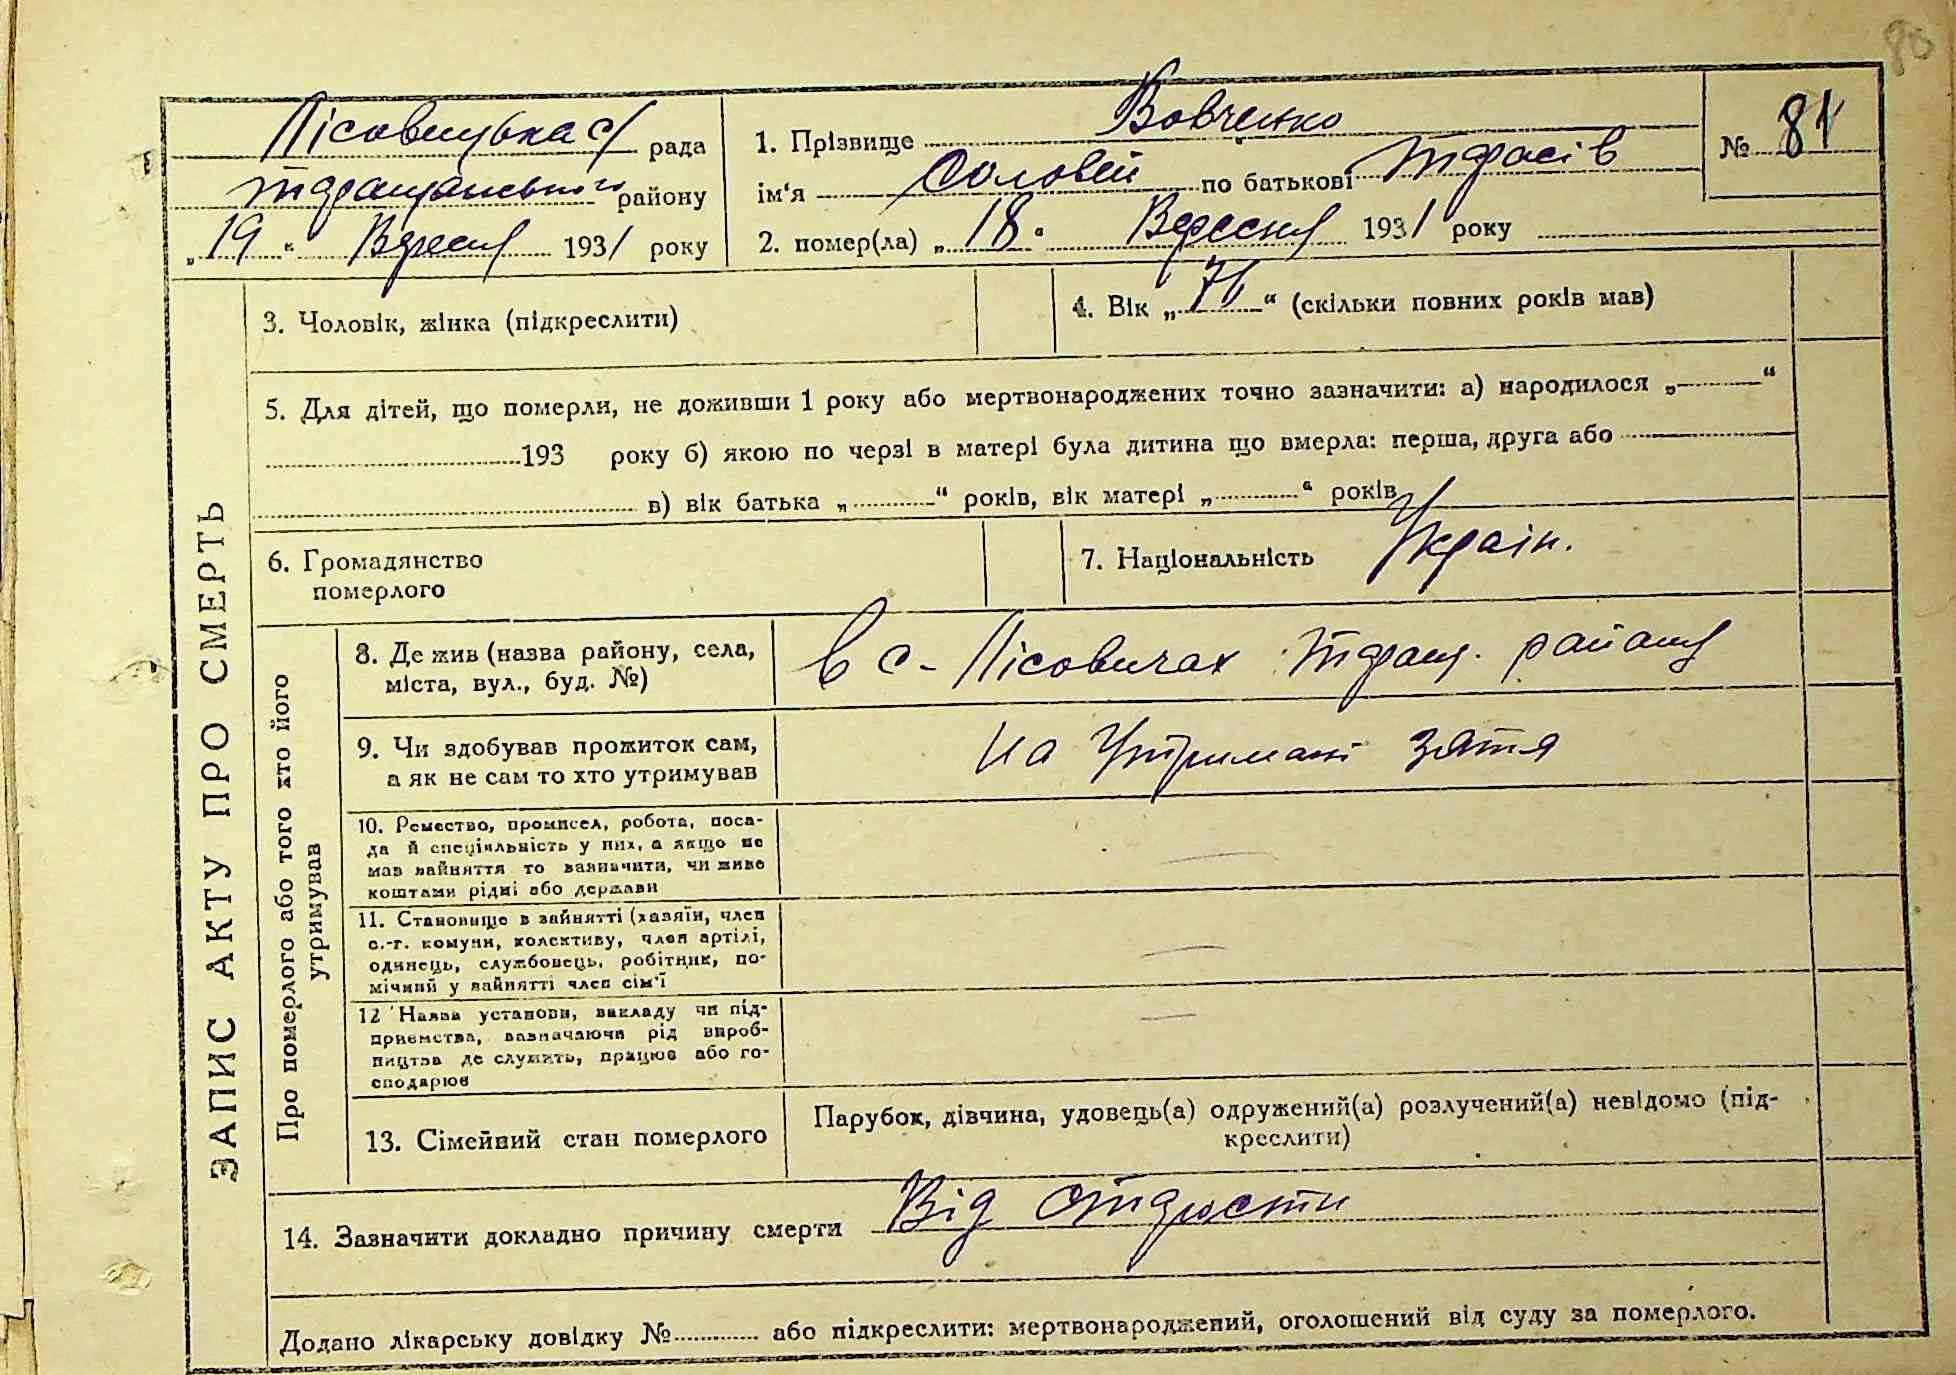 80
Лісовицька с/ рада
Таращанського району
„19“ Вересня 1931 року
1. Прізвище Вовченко
ім'я Соловей по батькові Тарасів
2. помер(ла) „18“ Вересня 1931 року
№ 81
ЗАПИС АКТУ ПРО СМЕРТЬ
3. Чоловік, жінка (підкреслити)
4. Вік „71“ (скільки повних років мав)
5. Для дітей, що померли, не доживши 1 року або мертвонароджених точно зазначити: а) народилося „ “
193 року б) якою по черзі в матері була дитина що вмерла: перша, друга або
в) вік батька „ “ років, вік матері „ “ років
6. Громадянство
померлого
7. Національність Україн.
Про померлого або того хто його
утримував
8. Де жив (назва району, села,
міста, вул., буд. №)
в с-Лісовичах Таращ. району
9. Чи здобував прожиток сам,
а як не сам то хто утримував
на утримані зятя
10. Ремество, промисел, робота, поса-
да й спеціяльність у них, а якщо не
мав зайняття то зазначити, чи живе
коштами рідні або держави
—
11. Становище в зайнятті (хазяїн, член
с.-г. комуни, колективу, член артілі,
одинець, службовець, робітник, по-
мічний у зайнятті член сім'ї
—
12 Назва установи, викладу чи під-
приємства, зазначаючи рід вироб-
ництва де служить, працює або го-
сподарює
—
13. Сімейний стан померлого
Парубок, дівчина, удовець(а) одружений(а) розлучений(а) невідомо (під-
креслити)
14. Зазначити докладно причину смерти Від старости
Додано лікарську довідку № або підкреслити: мертвонароджений, оголошений від суду за померлого.